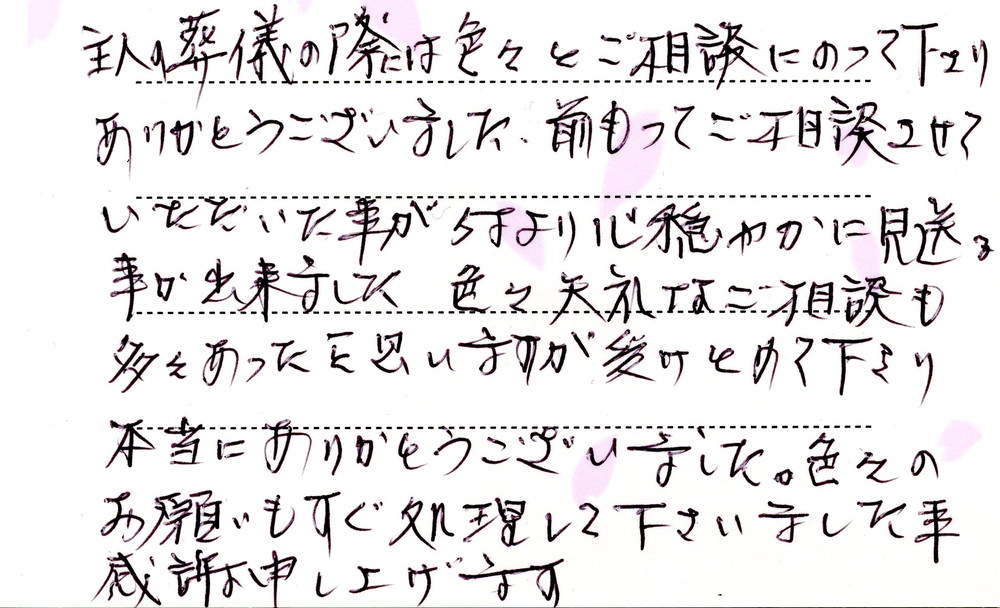 主人の葬儀の際には色々とご相談にのって下さり
ありがとうございました、前もってご相談させて
いただいた事がらはより心穏やかに見送る
事が出来ました 色々失礼なご相談も
多々あったと思いますが受けとめて下さり
本当にありがとうございました。色々の
お願いもすぐ処理して下さいました事
感謝お申し上げます